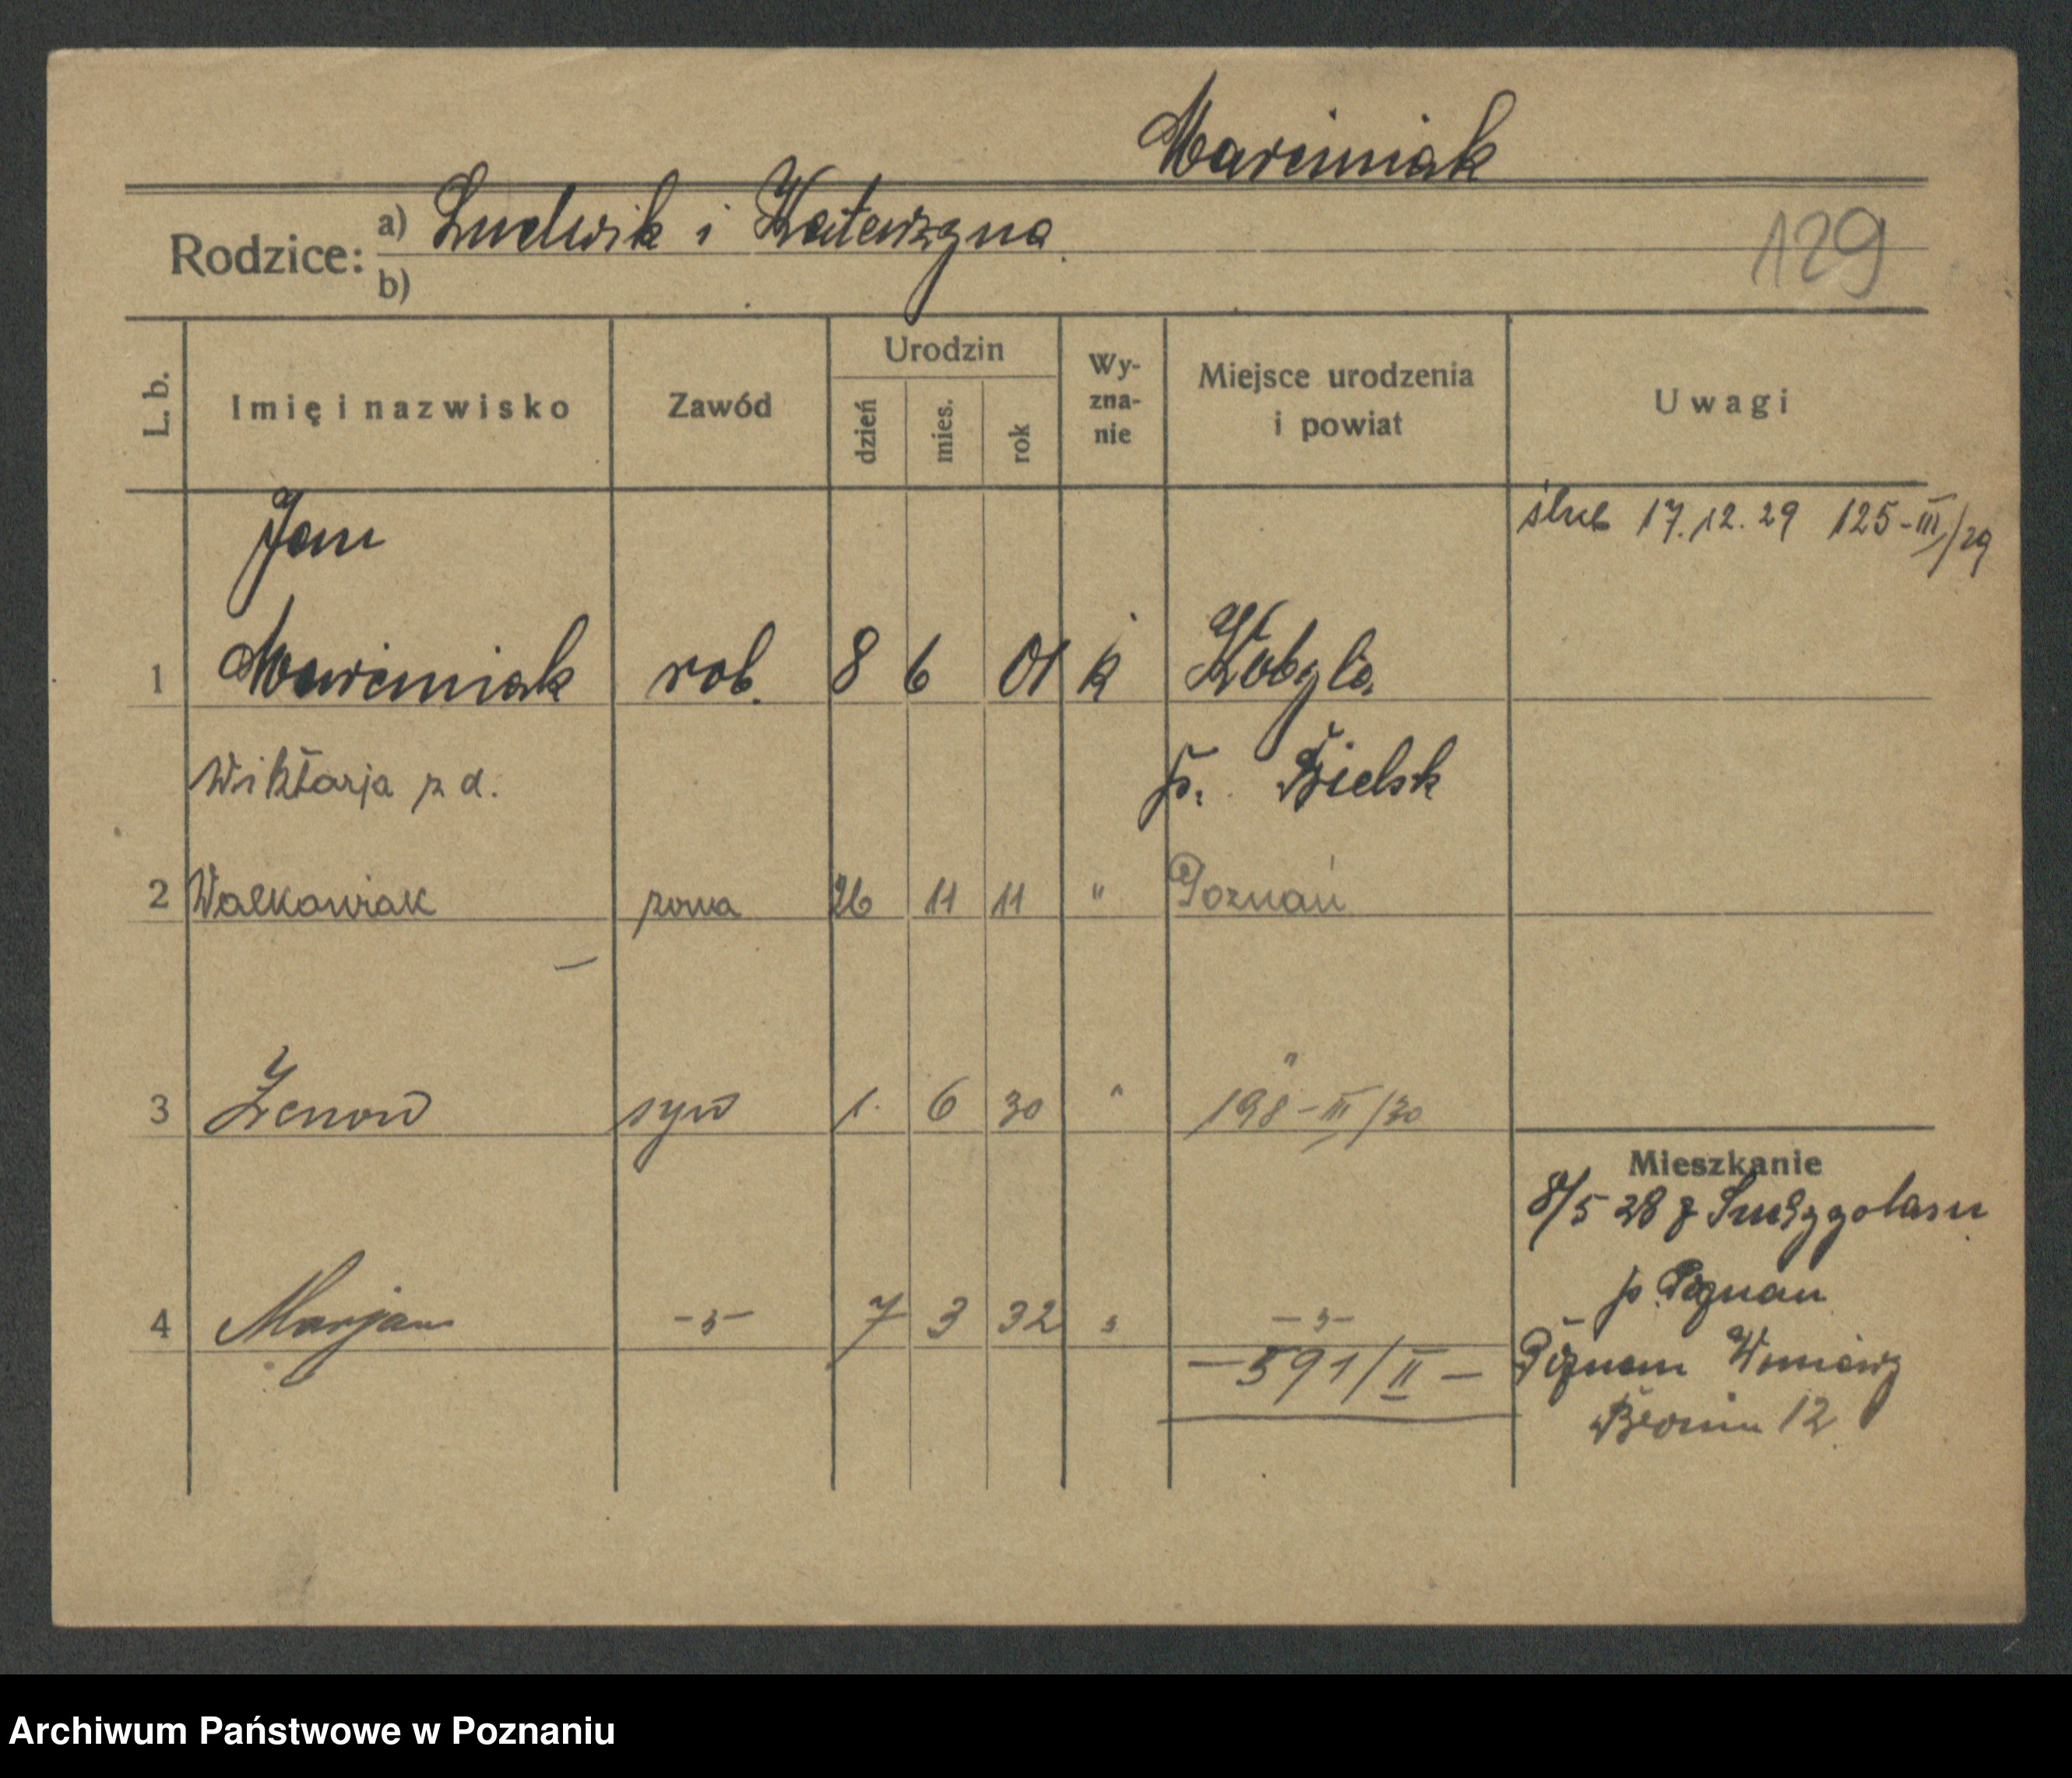 Marciniak
Rodzice: a) Ludwik i Katarzyna
b)
129
L. b. Imię i nazwisko Zawód Urodzin dzień mies. rok Wy-zna-nie Miejsce urodzenia i powiat Uwagi
Jan ślub 17.12.29 125-III/29
1 Marciniak rob. 8 6 01 k Kobyla
Wiktorja z d. p. Bielsk
2 Walkowiak żona 26 11 11 " Poznań
"
3 Zenon syn 1. 6 30 " 198-III/30
Mieszkanie
8/5 28 z
p. Poznań
4 Marjan -"- 7 3 32 " -"-
-591/II- Poznań
12
Archiwum Państwowe w Poznaniu